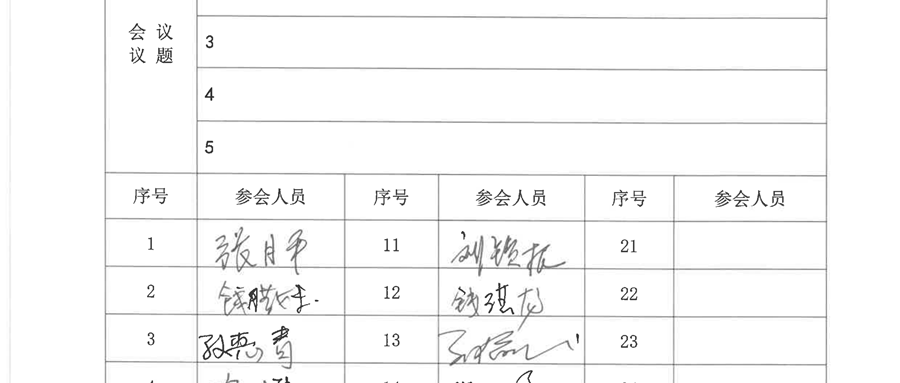 会 议
议 题
3
4
5
序号 参会人员 序号 参会人员 序号 参会人员
1 张月平 11 刘 21
2 12 钱琪 22
3 孙惠青 13 23